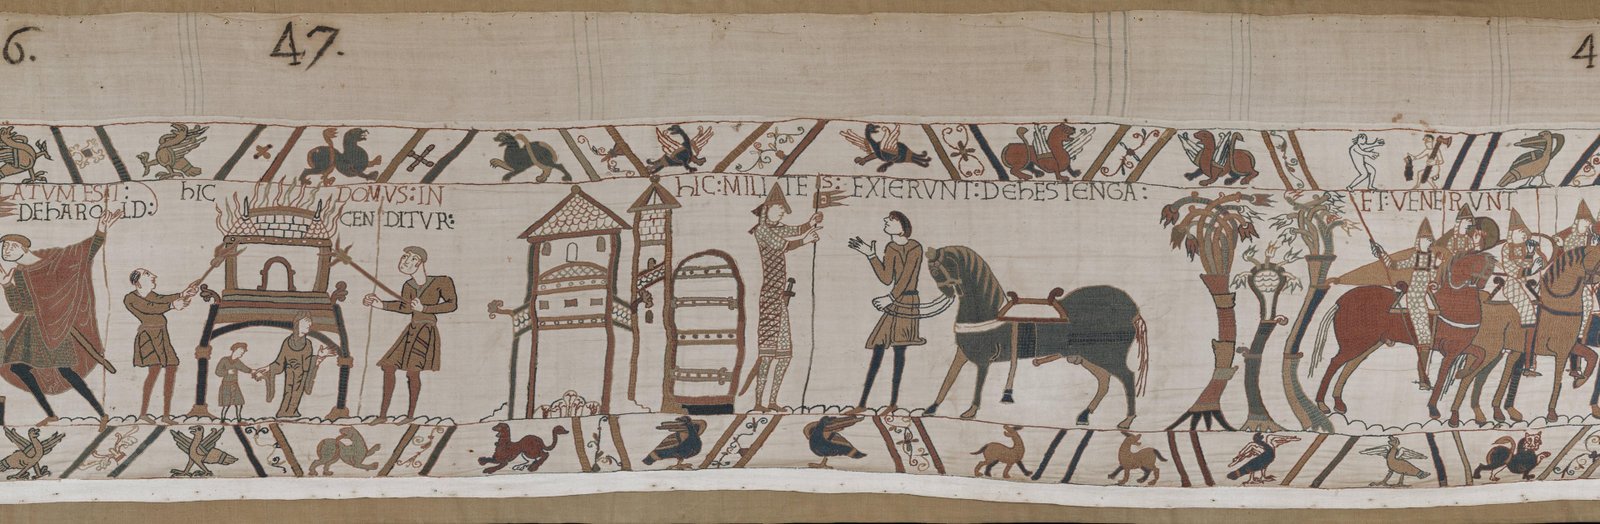 6.
47.
4
ATVM EST:
DE hAROLD:
hIC DOMVS: IN
CENDITVR:
hIC: MILITES: EXIERVNT: DE hESTENGA:
ET: VENERVNT